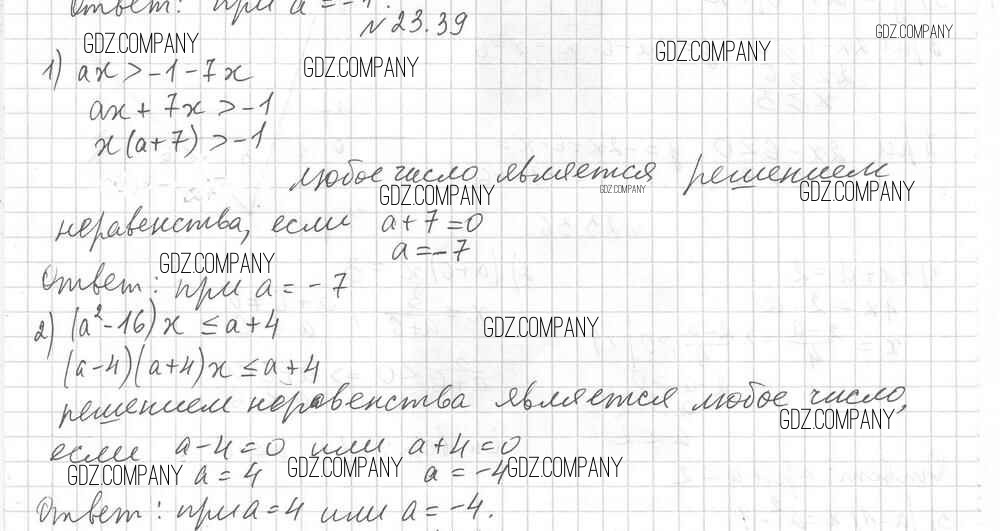 Ответ: при a = -1.
N 23.39
GDZ.COMPANY
GDZ.COMPANY
GDZ.COMPANY
GDZ.COMPANY
1) ax > -1 - 7x
ax + 7x > -1
x(a+7) > -1
любое число является решением
GDZ.COMPANY
GDZ.COMPANY
GDZ.COMPANY
неравенства, если a + 7 = 0
a = -7
GDZ.COMPANY
Ответ: при a = -7
2) (a²-16)x ≤ a+4
GDZ.COMPANY
(a-4)(a+4)x ≤ a+4
решением неравенства является любое число,
GDZ.COMPANY
если a-4=0 или a+4=0
GDZ.COMPANY a = 4 GDZ.COMPANY a = -4 GDZ.COMPANY
Ответ: при a=4 или a=-4.